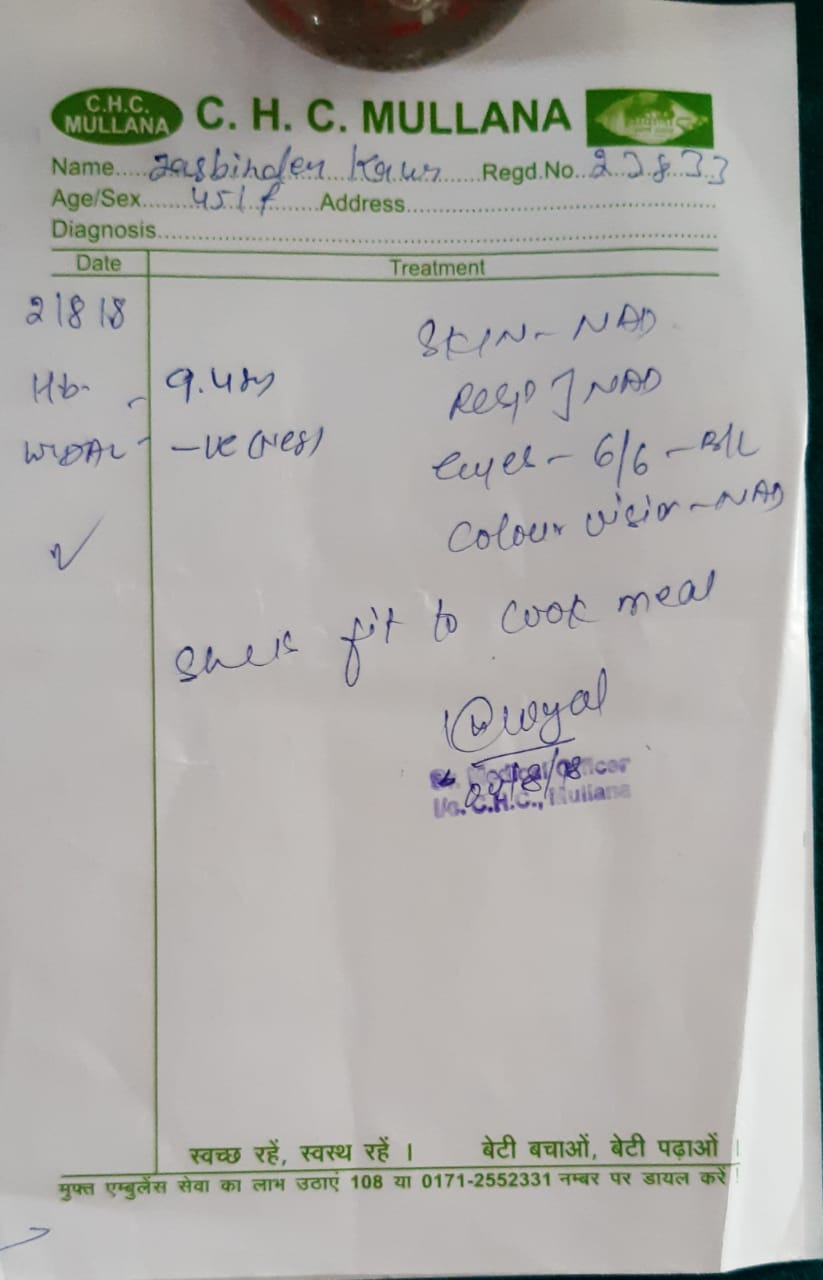 C.H.C.
MULLANA
C. H. C. MULLANA
Name.....Jasbinder Kaur......Regd.No..22833
Age/Sex........45/f.......Address..........
Diagnosis..........
Date Treatment
2/8/18
SKIN - NAD
Hb. - 9.4gm
Resp ] NAD
WIDAL - -ve (Neg)
eyes - 6/6 - B/L
Colour vision - NAD
She is fit to cook meal
Sr. Medical Officer
02/8/18
I/c. C.H.C., Mullana
स्वच्छ रहें, स्वस्थ रहें । बेटी बचाओं, बेटी पढ़ाओं ।
मुफ्त एम्बुलेंस सेवा का लाभ उठाएं 108 या 0171-2552331 नम्बर पर डायल करें !